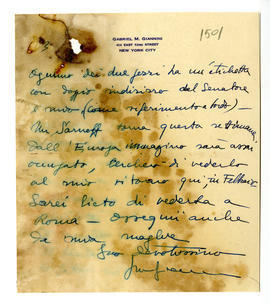 GABRIEL M. GIANNINI
NEW YORK CITY
150/
Ognuno dei due pezzi ha un'etichetta
con doppio indirizzo del Senatore
e mio (come riferimento a
Mr. Sarnoff torna questa settimana
dall'Europa immagino sarà assai
occupato, cercherò di vederlo
al mio ritorno qui, in Febbraio
Sarei lieto di vederla a
Roma — ossequi anche
da mia moglie
Suo devotissimo